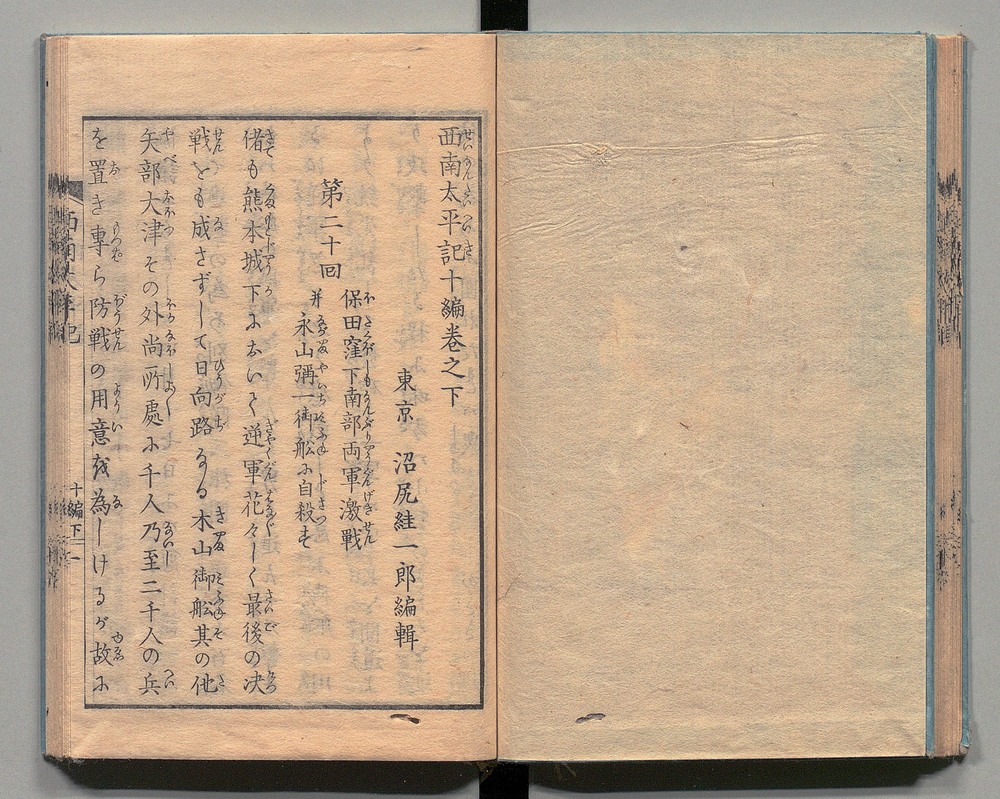 西南太平記十編巻之下
東京 沼尻絓一郎編輯
第二十回 保田窪下南部両軍激戦
并永山彌一御舩に自殺す
偖も熊本城下においく逆軍花々しく最後の决
戦とも成さずして日向路なる木山御舩其の他
矢部大津その外尚所處に千人乃至二千人の兵
を置き専ら防戦の用意を為しけるが故に
西南太平記
十編下 一